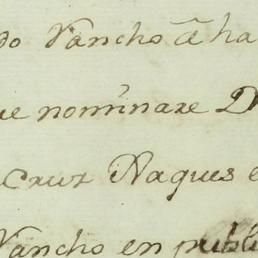 do Vancho â ha
ue nominare D
Cruz Naques e
Vancho en publi